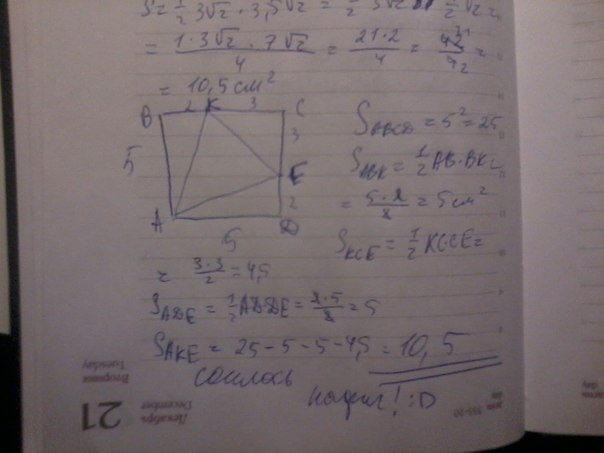 S = 1/2 3√2 · 3,5√2 =
= (1·3√2 · 7√2)/4 = (21·2)/4 =
= 10,5 см²
B 2 K 3 C
3
5
E
2
A D
5
S_ABCD = 5² = 25
S_ABK = 1/2 AB·BK =
= (5·2)/2 = 5 см²
S_KCE = 1/2 KC·CE =
= (3·3)/2 = 4,5
S_ADE = 1/2 AD·DE = (2·5)/2 = 5
S_AKE = 25 - 5 - 5 - 4,5 = 10,5
сошлось
! :D
21
Декабрь
December
Вторник
Tuesday
355-10